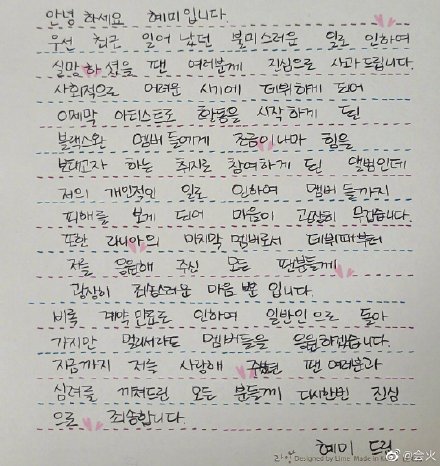 안녕 하세요 혜미입니다.
우선 최근 일어 났던 불미스러운 일로 인하여
실망하셨을 팬 여러분께 진심으로 사과드립니다.
사회적으로 어려운 시기에 데뷔하게 되어
이제막 아티스트로 활동을 시작하게 된
블랙스완 멤버들에게 조금이나마 힘을
보태고자 하는 취지로 참여하게 된 앨범인데
저의 개인적인 일로 인하여 멤버들까지
피해를 보게 되어 마음이 굉장히 무겁습니다.
또한 라니아의 마지막 멤버로서 데뷔때부터
저를 응원해 주신 모든 팬분들께
굉장히 죄송스러운 마음 뿐 입니다.
비록 계약 만료로 인하여 일반인으로 돌아
가지만 멀리서라도 멤버들을 응원하겠습니다.
지금까지 저를 사랑해 주셨던 팬 여러분과
심려를 끼쳐드린 모든 분들께 다시한번 진심
으로 죄송합니다.
혜미 드림
Designed by Lime Made in
@会火